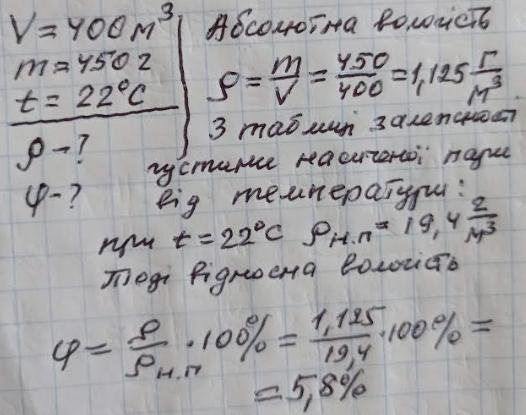 V = 400 м³
m = 450 г
t = 22°C
ρ - ?
φ - ?
Абсолютна вологість
ρ = m/V = 450/400 = 1,125 г/м³
З таблиці залежності
густини насиченої пари
від температури:
при t = 22°C ρн.п = 19,4 г/м³
Тоді відносна вологість
φ = ρ/ρн.п · 100% = 1,125/19,4 · 100% =
= 5,8%